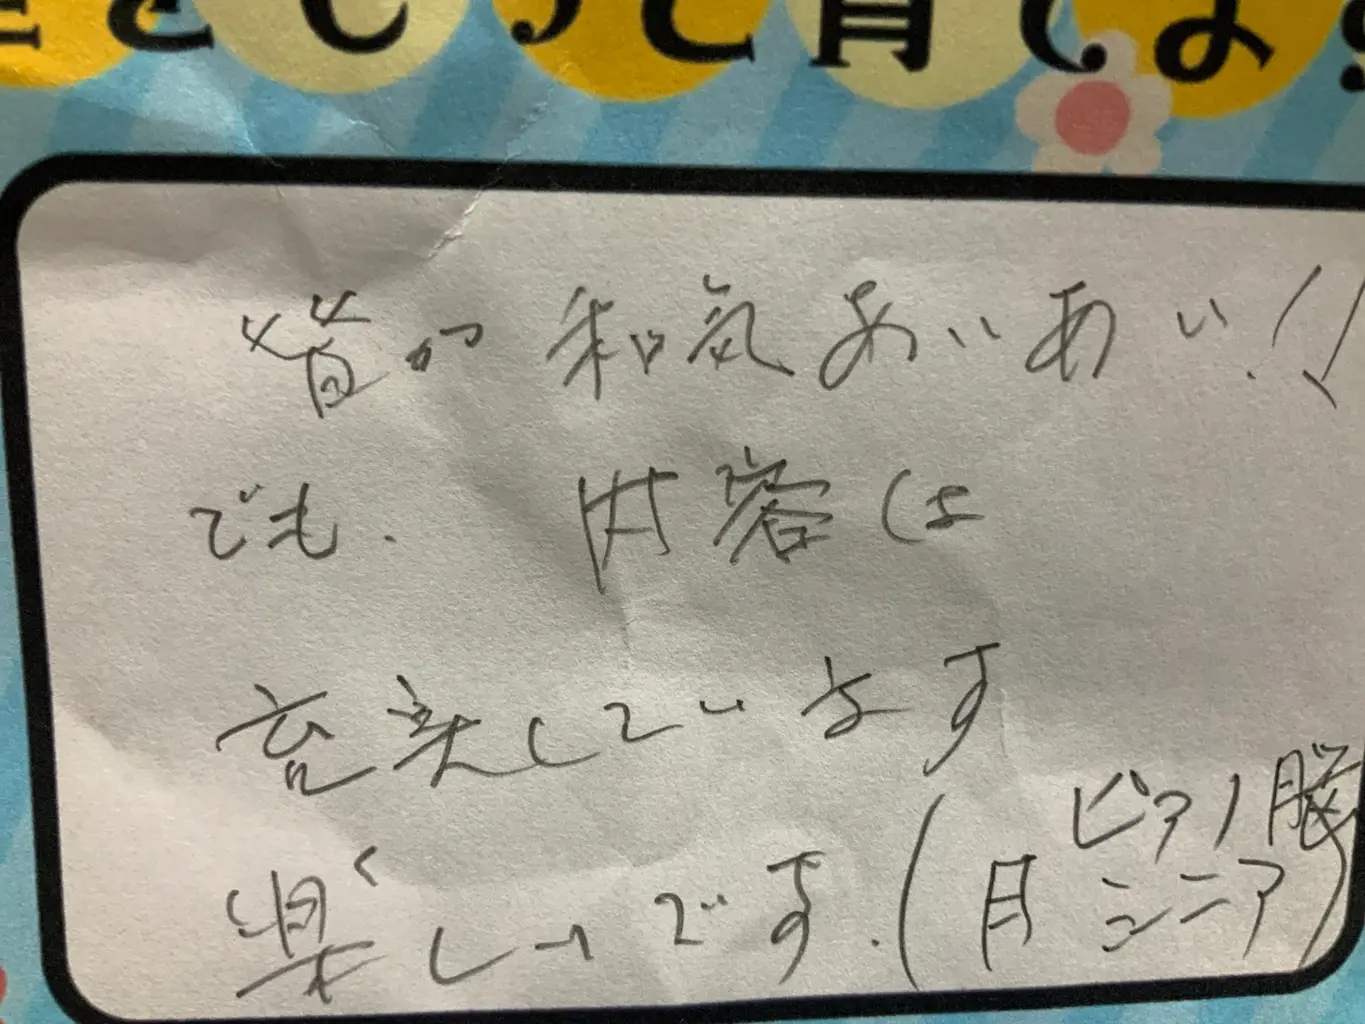 皆が和気あいあい!!
でも、内容は
充実しています
楽しいです。(月 ピアノ脳
シニア)